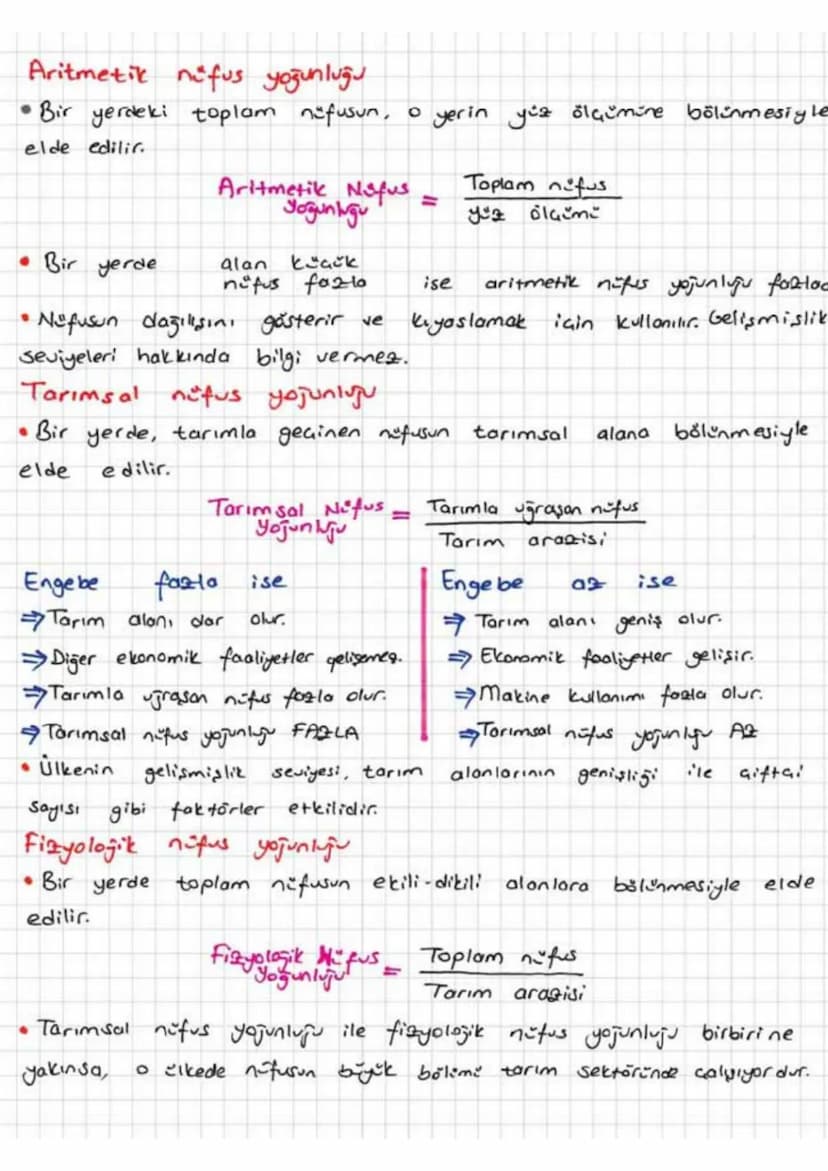 Aritmetik nüfus yoğunluğu
• Bir yerdeki toplam nüfusun, o yerin yüz ölçümüne bölünmesiyle
elde edilir.
Aritmetik Nüfus Yoğunluğu = Toplam nüfus
yüz ölçümü
• Bir yerde alan küçük
nüfus fazla ise aritmetik nüfus yoğunluğu fazlad
• Nüfusun dağılışını gösterir ve kıyaslamak için kullanılır. Gelişmişlik
seviyeleri hakkında bilgi vermez.
Tarımsal nüfus yoğunluğu
• Bir yerde, tarımla geçinen nüfusun tarımsal alana bölünmesiyle
elde edilir.
Tarımsal Nüfus Yoğunluğu = Tarımla uğraşan nüfus
Tarım arazisi
Engebe fazla ise
⇒ Tarım alanı dar olur.
⇒ Diğer ekonomik faaliyetler gelişemez.
⇒ Tarımla uğraşan nüfus fazla olur.
⇒ Tarımsal nüfus yoğunluğu FAZLA
Engebe az ise
⇒ Tarım alanı geniş olur.
⇒ Ekonomik faaliyetler gelişir.
⇒ Makine kullanımı fazla olur.
⇒ Tarımsal nüfus yoğunluğu AZ
• Ülkenin gelişmişlik seviyesi, tarım alanlarının genişliği ile çiftçi
sayısı gibi faktörler etkilidir.
Fizyolojik nüfus yoğunluğu
• Bir yerde toplam nüfusun ekili-dikili alanlara bölünmesiyle elde
edilir.
Fizyolojik Nüfus Yoğunluğu = Toplam nüfus
Tarım arazisi
• Tarımsal nüfus yoğunluğu ile fizyolojik nüfus yoğunluğu birbirine
yakınsa, o ülkede nüfusun büyük bölümü tarım sektöründe çalışıyordur.